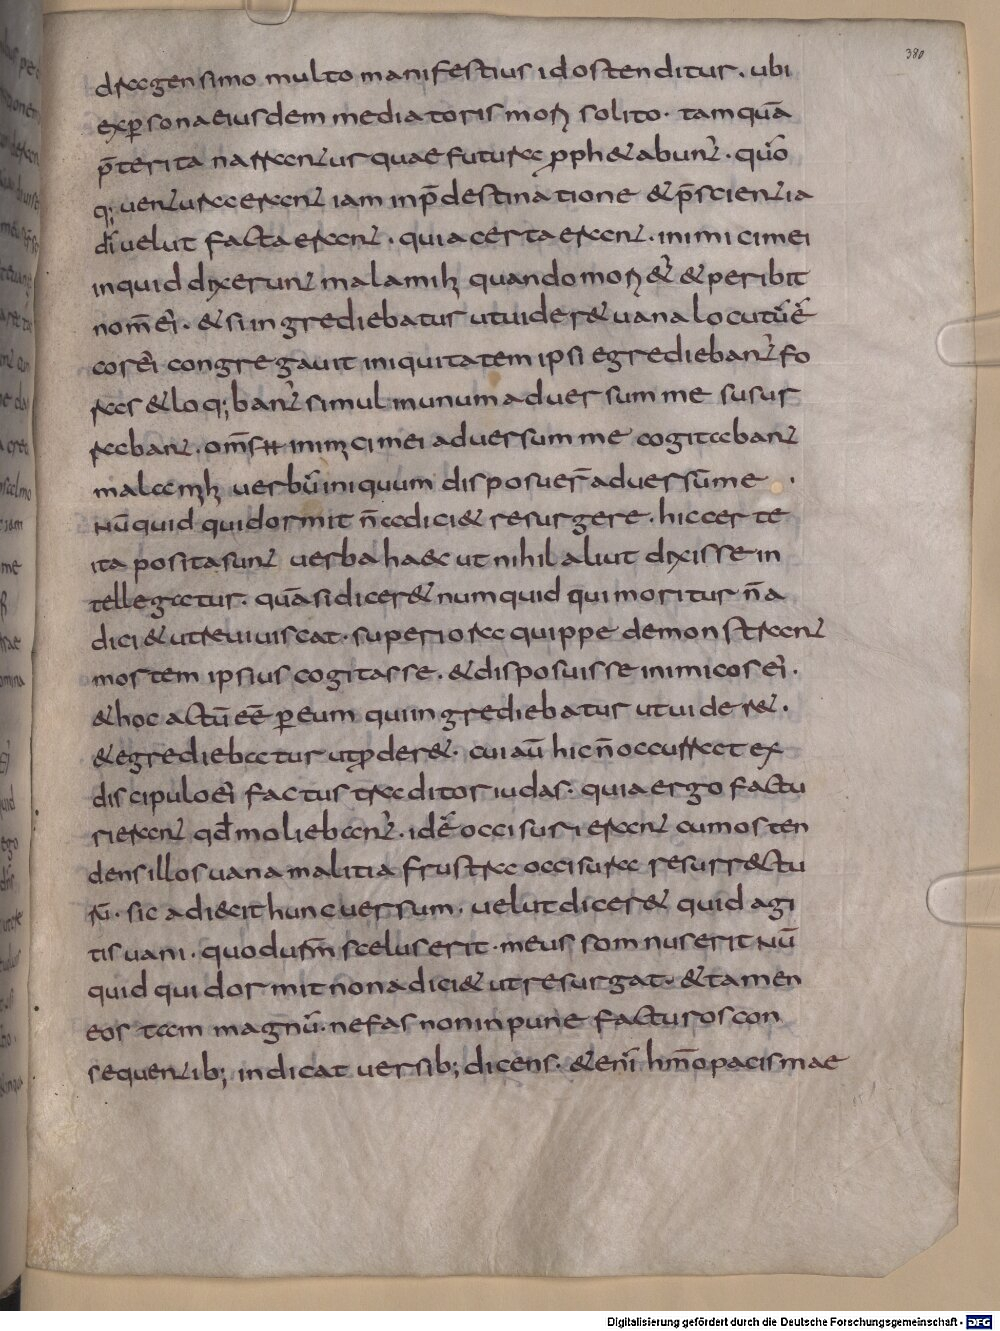 380
dragensimo multo manifestius id ostenditur. ubi
ex p̱sona eiusdem mediatoris more solito. tam quā
p̄terita narrantur quae futura pphetabant̓. qm̄o
q; uentura erant iam in p̄destinatione & p̄scientia
dī uelut facta erant. quia certa erant. inimici mei
inquid dixerunt mala mihi quando moriet̓ & peribit
nom̄ ei̓. & si ingrediebatur ut uideret uana locutū ē
cor ei̓ congregauit iniquitatem ipsi egredieban̓t fo
ras & loq;bant̓ simul in unum aduersum me susur
rabant. om̄s inimici mei aduersum me cogitabant
mala mihi uerbū iniquum disposuer̄ aduersū me .
Nūquid qui dormit n̄ adiciet resurgere. hic certe
ita posita sunt uerba haec ut nihil aliut dixisse in
tellegatur. quā si diceret numquid qui moritur n̄ a
diciet ut reuiuiscat. superiora quippe demonstrant
mortem ipsius cogitasse. & disposuisse inimicos ei̓.
& hoc actū eē p̱ eum qui ingrediebatur ut uideret.
& egrediebatur ut p̱deret. cui aū hic n̄ occurrat ex
discipulo ei̓ factus traditor iudas. quia ergo factu
ri erant qd̄ moliebant̓. id ē occisuri erant cum osten
dens illos uana malitia frustra occisura resurrectu
rū. sic adiecit hunc uersum. uelut diceret quid agi
tis uani. quod urm̄ scelus erit. meus somnus erit Nū
quid qui dormit non adiciet ut resurgat. & tamen
eos tam magnū. nefas non inpune facturos con
sequentib; indicat uersib; dicens. & eni̓ hm̄o pacis mae
Digitalisierung gefördert durch die Deutsche Forschungsgemeinschaft - DFG